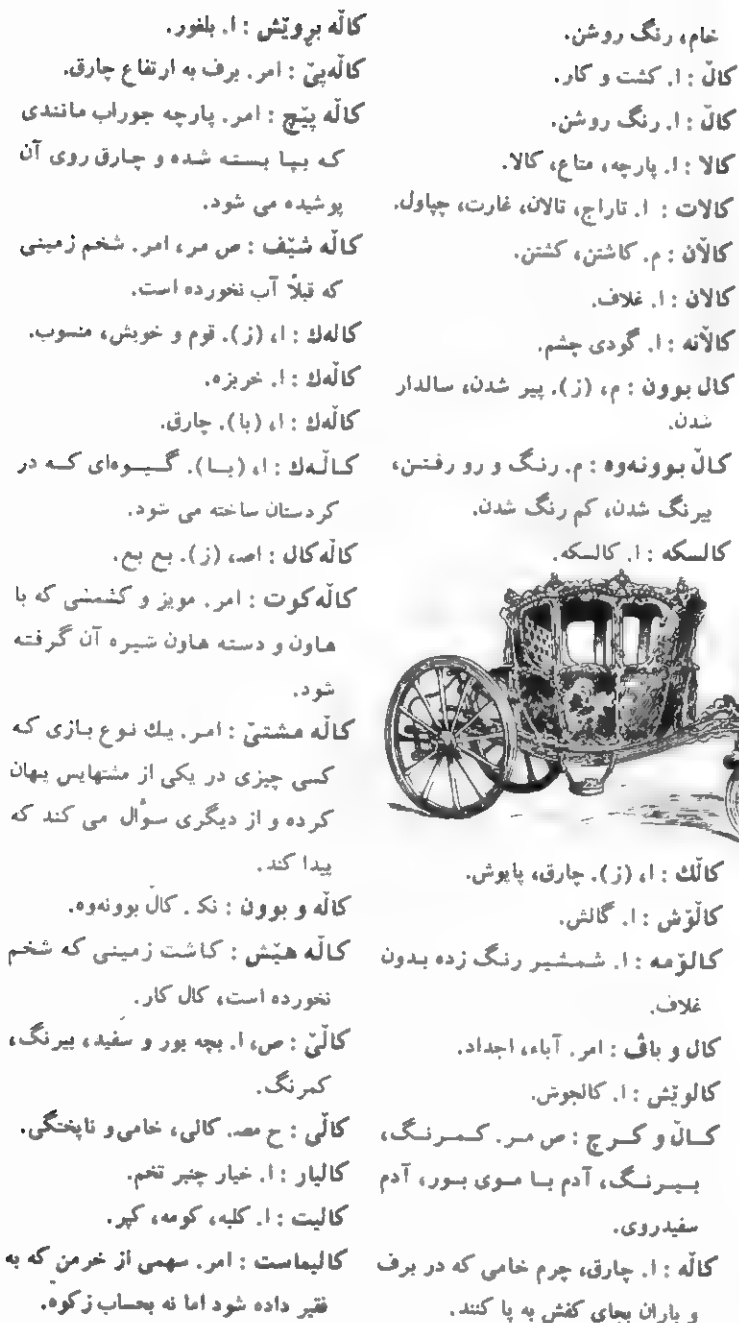 خام، رنگ روشن.
کاڵ : ا. کشت و کار.
کاڵ : ا. رنگ روشن.
کالا : ا. پارچه، متاع، کالا.
کالات : ا. تاراج، تالان، غارت، چپاول.
کاڵان : م. کاشتن، کشتن.
کالان : ا. غلاف.
کاڵانه : ا. گودی چشم.
کال بوون : م، (ز). پیر شدن، سالدار
شدن.
کاڵ بوونه‌وه : م. رنگ و رو رفتن،
بیرنگ شدن، کم رنگ شدن.
کالسکه : ا. کالسکه.
کاڵك : ا، (ز). چارق، پاپوش.
کاڵۆش : ا. گالش.
کالۆمه : ا. شمشیر رنگ زده بدون
غلاف.
کال و باڤ : امر. آباء، اجداد.
کالوێش : ا. کالجوش.
کاڵ و کرچ : ص مر. کمرنگ،
بیرنگ، آدم با موی بور، آدم
سفیدروی.
کاڵه : ا. چارق، چرم خامی که در برف
و باران بجای کفش به پا کنند.
کاڵه بروێش : ا. بلغور.
کاڵه‌پێ : امر. برف به ارتفاع چارق.
کاڵه پێچ : امر. پارچه جوراب مانندی
که بپا بسته شده و چارق روی آن
پوشیده می شود.
کاڵه شێف : ص مر، امر. شخم زمینی
که قبلاً آب نخورده است.
کاله‌ك : ا، (ز). قوم و خویش، منسوب.
کاڵه‌ك : ا. خربزه.
کاڵه‌ك : ا، (با). چارق.
کاڵه‌ك : ا، (با). گیوه‌ای که در
کردستان ساخته می شود.
کاڵه کال : اصـ، (ز). بع بع.
کاڵه کوت : امر. مویز و کشمشی که با
هاون و دسته هاون شیره آن گرفته
شود.
کاڵه مشتێ : امر. یك نوع بازی که
کسی چیزی در یکی از مشتهایس پهان
کرده و از دیگری سؤال می کند که
پیدا کند.
کاڵه و بوون : نکـ . کاڵ بوونه‌وه.
کاڵه هێش : کاشت زمینی که شخم
نخورده است، کال کار.
کاڵێ : ص، ا. بچه بور و سفید، بیرنگ،
کمرنگ.
کاڵی : ح مصـ. کالی، خامی و ناپختگی.
کالیار : ا. خیار چنبر تخم.
کالیت : ا. کلبه، کومه، کپر.
کالیماست : امر. سهمی از خرمن که به
فقیر داده شود اما نه بحساب زکوة.